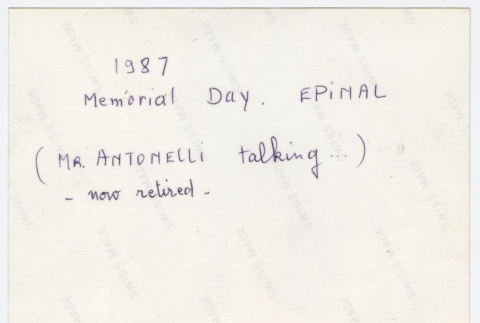 1987
Memorial Day. EPINAL
(MR. ANTONELLI talking...)
- now retired -
SWISS MADE